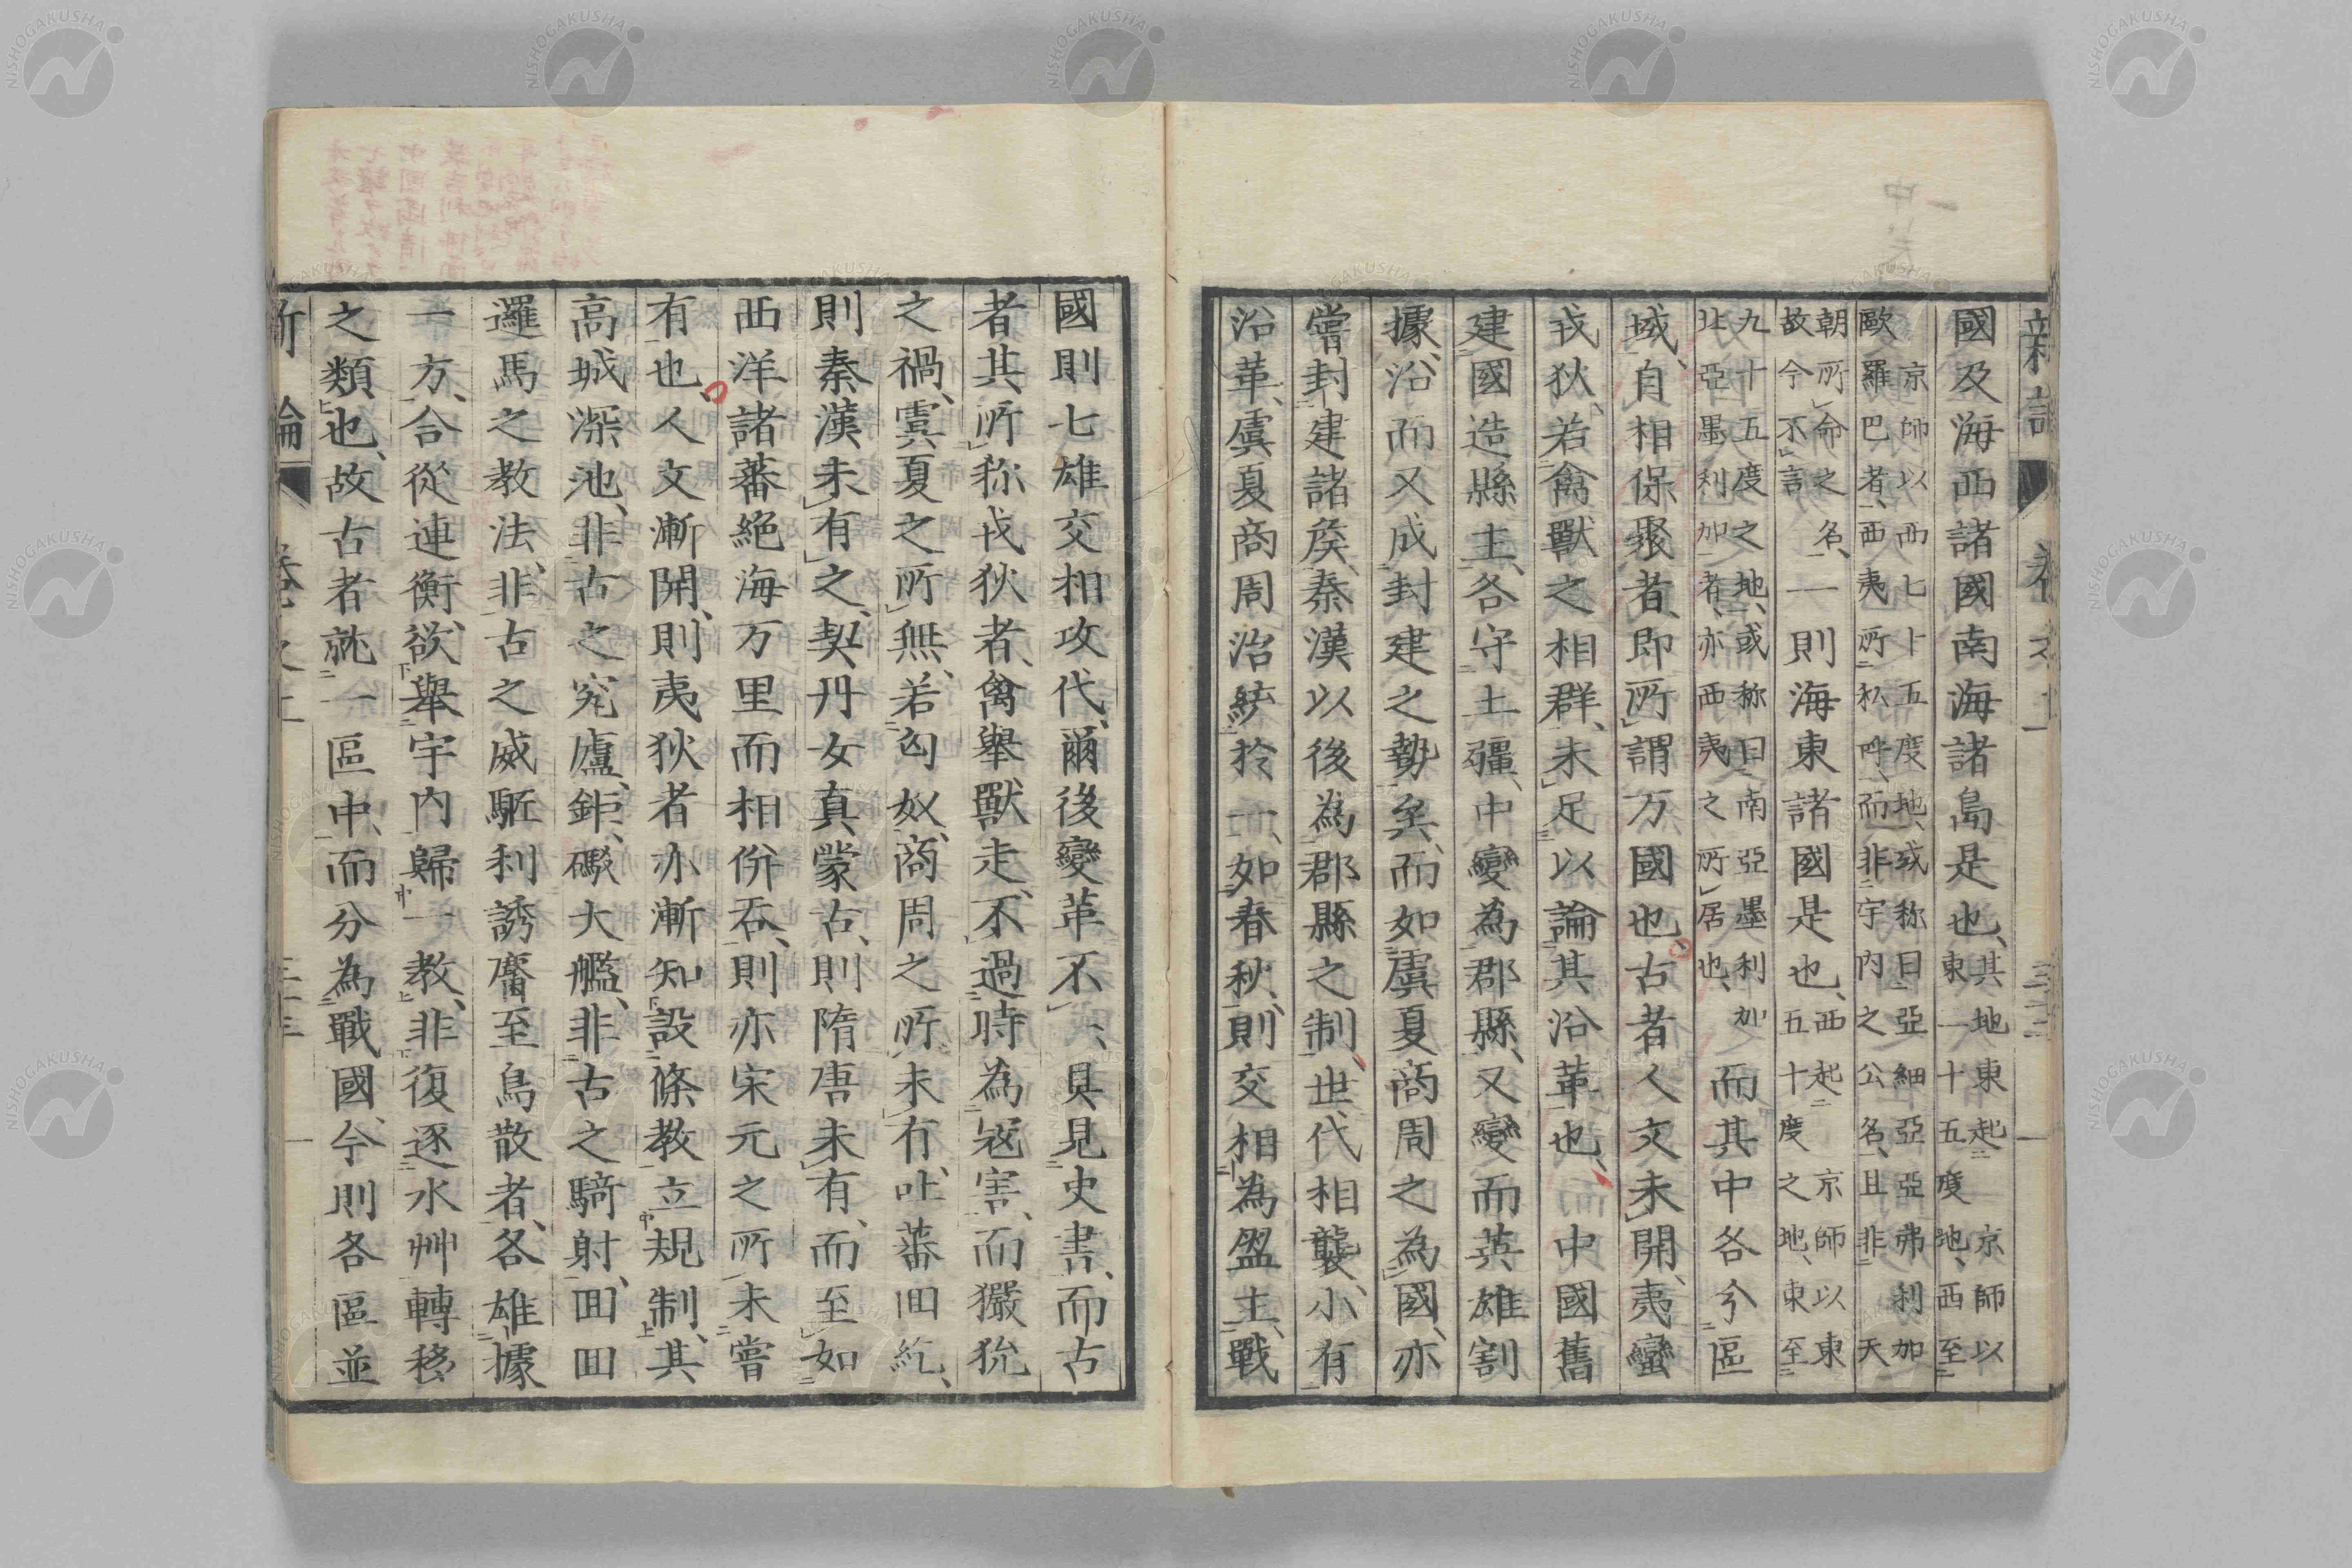 國及海西諸國南海諸島是也其地東起京師以
東一十五度地西至
京師以西七十五度地或称曰亞細亞亞弗利加
歐羅巴者西夷所私呼而非宇内之公名且非天
朝所命之名
故今不言
一則海東諸國是也西起京師以東
五十度之地東至
九十五度之地或称曰南亞墨利加
北亞墨利加者亦西夷之所居也
而其中各分區
域自相保聚者即所謂万國也古者人文未開夷蠻
戎狄若禽獸之相群未足以論其沿革也而中國舊
建國造縣主各守土疆中變為郡縣又變而英雄割
據沿而又成封建之勢矣而如虞夏商周之為國亦
嘗封建諸矦秦漢以後為郡縣之制世代相襲小有
沿革虞夏商周治統於一如春秋則交相為盟主戰
國則七雄交相攻伐爾後變革不一具見史書而古
者其所称戎狄者禽舉獸走不過時為寇害而玁狁
之禍虞夏之所無若匈奴商周之所未有吐蕃回紇
則秦漢未有之契丹女真蒙古則隋唐未有而至如
西洋諸蕃絶海万里而相併吞則亦宋元之所未嘗
有也人文漸開則夷狄者亦漸知設條教立規制其
高城深池非古之穹廬鉅礮大艦非古之騎射回回
邏馬之教法非古之威駈利誘麕至鳥散者各雄據
一方合從連衡欲舉宇内歸一教非復逐水艸轉移
之類也故古者就一區中而分為戰國今則各區並
新論 卷之上